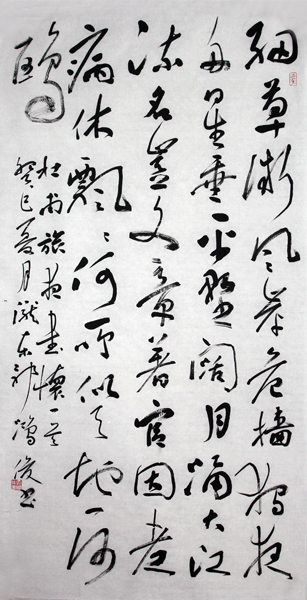 細草微風岸危檣獨夜
舟星垂平野闊月涌大江
流名豈文章著官因老
病休飄々何所似天地一沙
鷗
杜甫旅夜書懷一首
癸巳夏月隴東鴻俊書